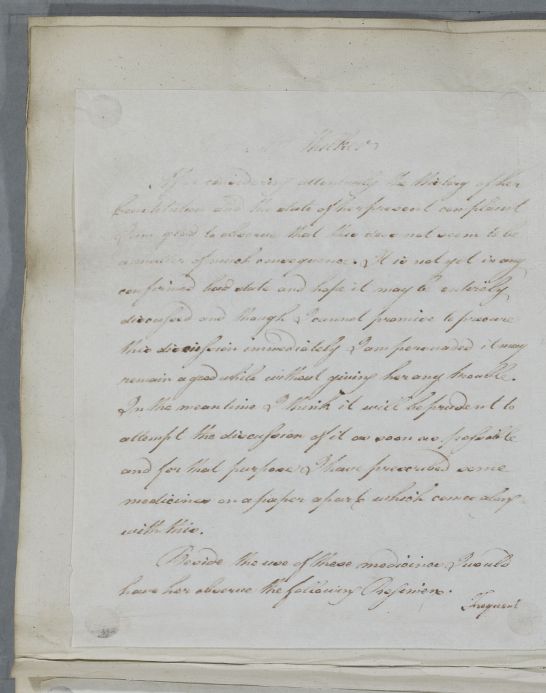 Thicker
After considering attentively the History of her
Constitution and the state of her present complaint
I am glad to observe that this does not seem to be
a matter of much consequence. It is not yet in any
confirmed bad state and hope it may be entirely
discussed and though I cannot promise to procure
this discussion immediately I am persuaded it may
remain a good while without giving her any trouble.
In the meantime I think it will be prudent to
attempt the discussion of it as soon as possible
and for that purpose I have prescribed some
medicines on a paper apart which comes along
with this.
Beside the use of these medicines I would
have her observe the following Regimen.
Frequent